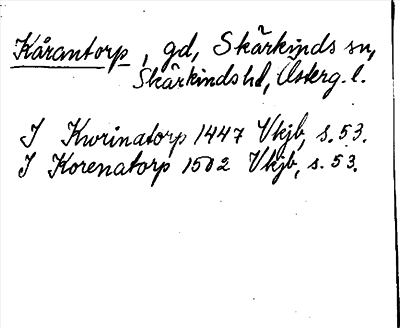 Kårantorp, gd, Skärkinds sn,
Skärkinds hd, Österg. l.
I Kwrinatorp 1447 Vkjb, s. 53.
I Korenatorp 1502 Vkjb, s. 53.